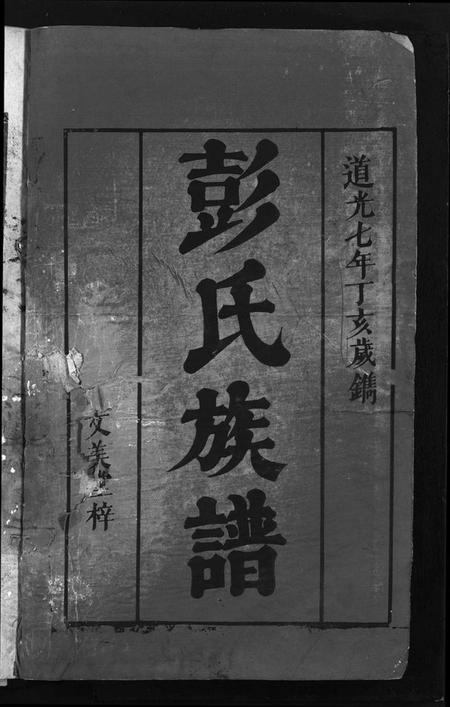 道光七年丁亥歲鐫
彭氏族譜
文美堂梓